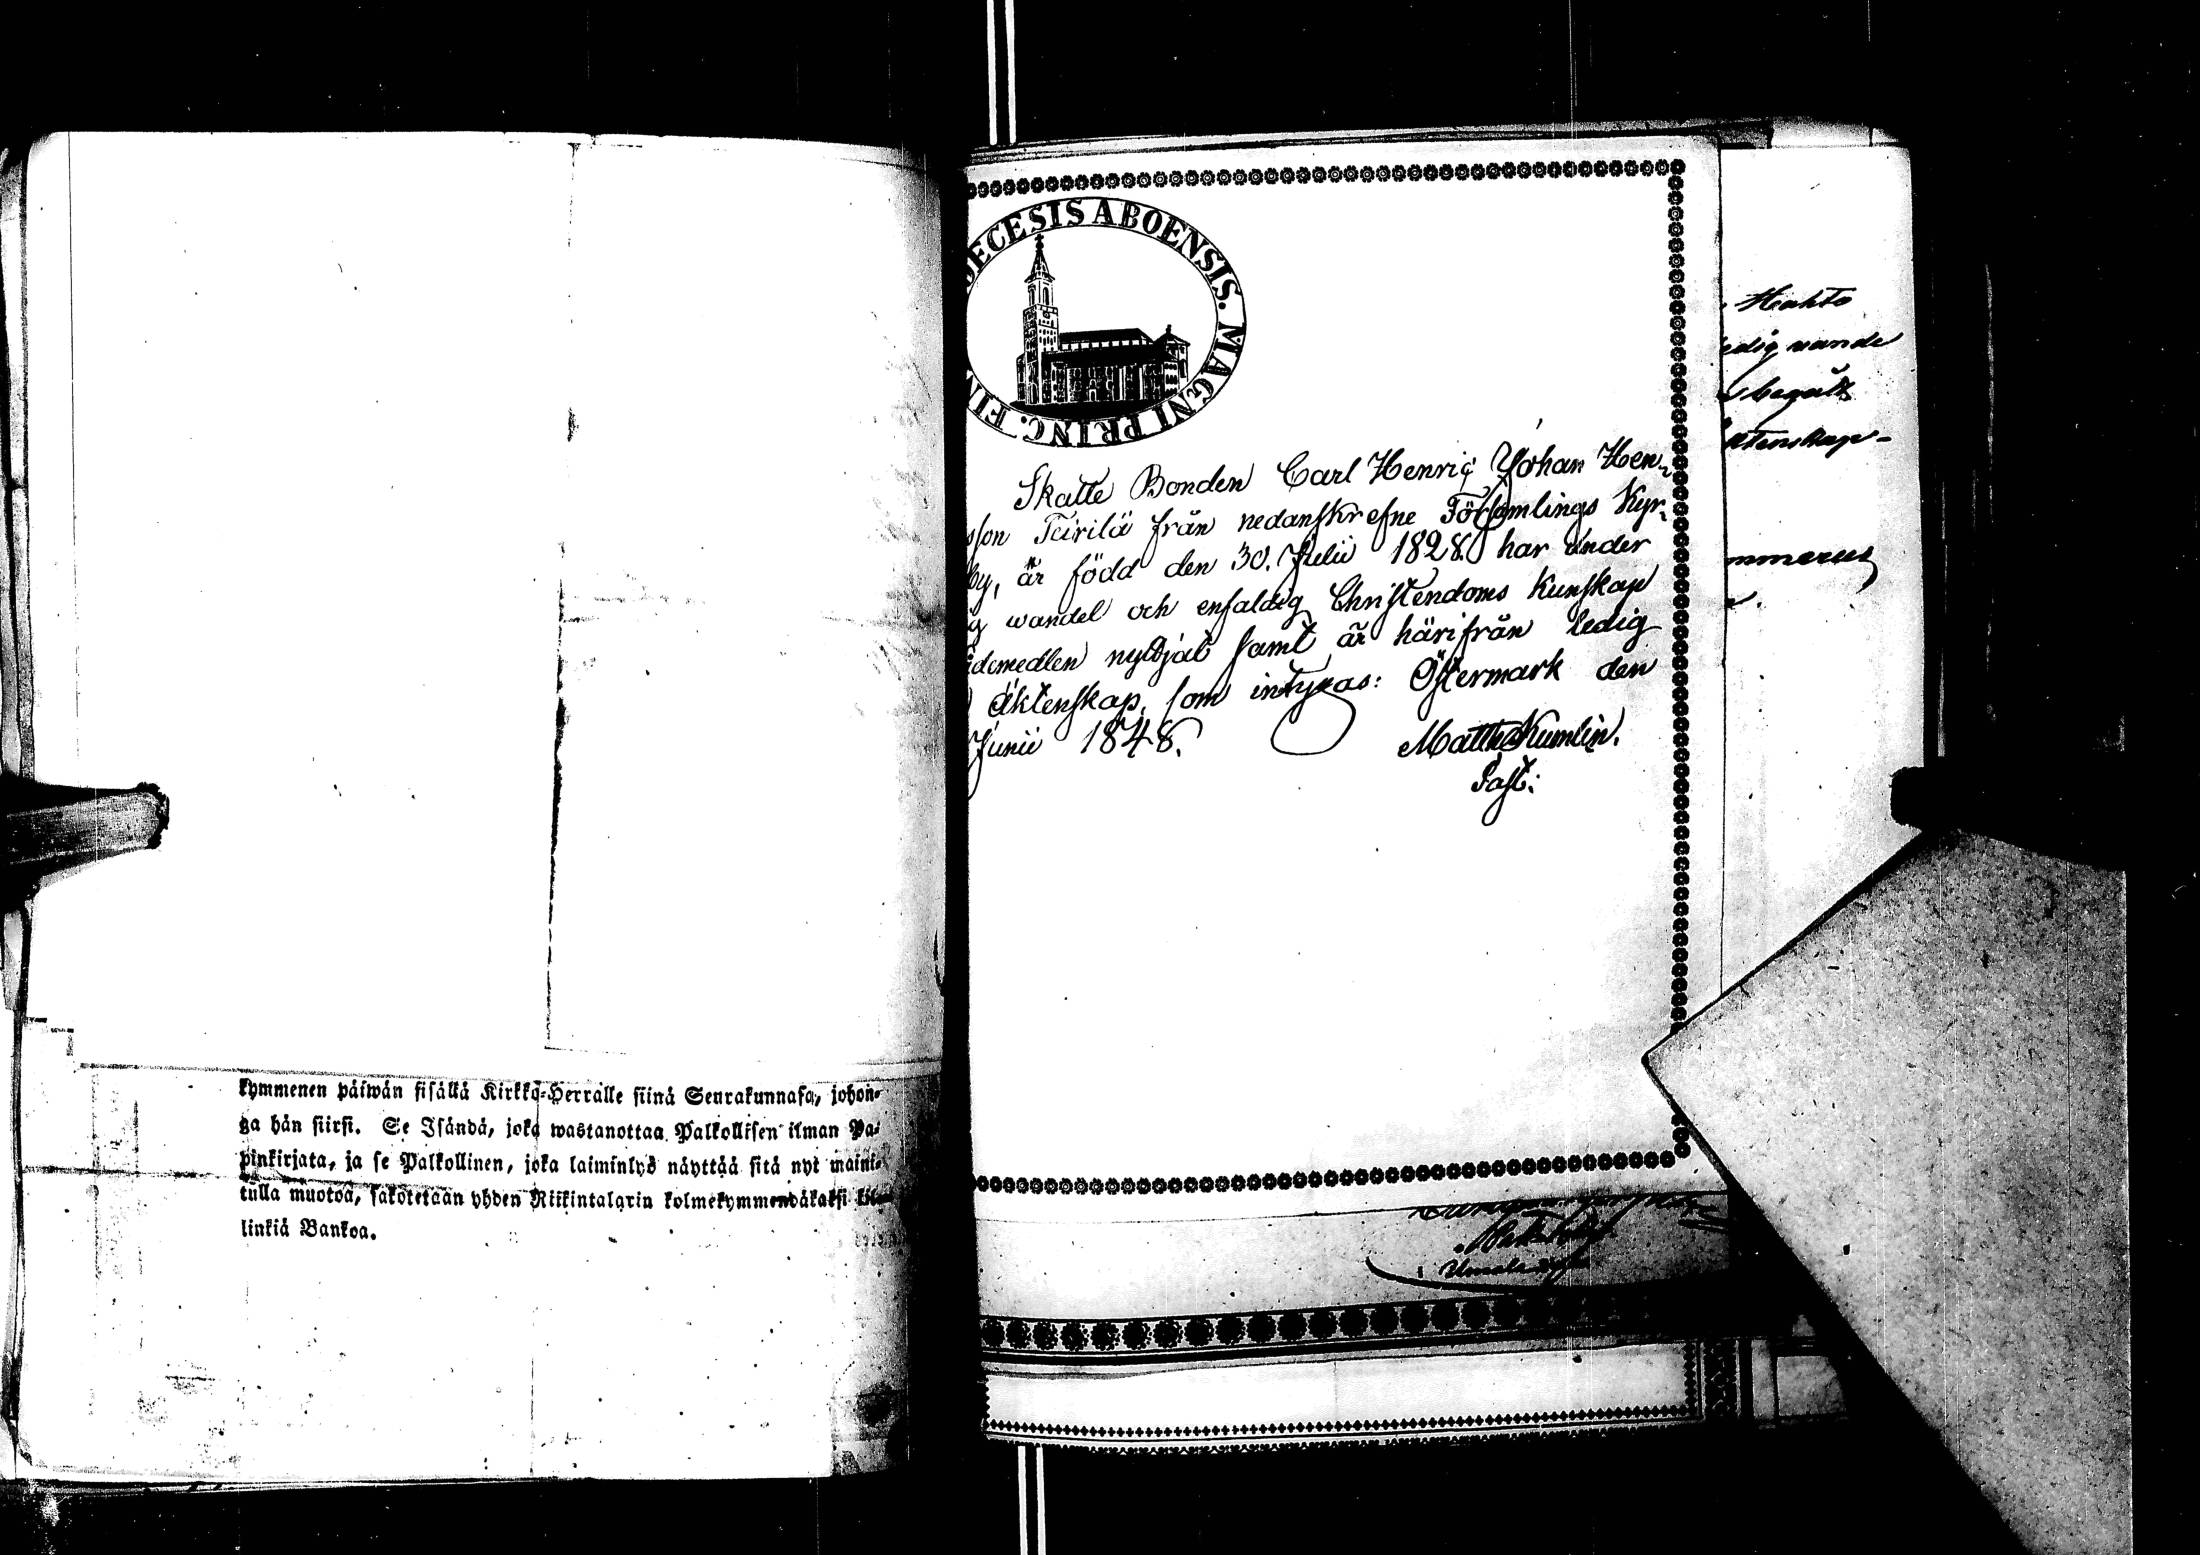 kymmenen päiwän sisällä Kirkko-Herralle siinä Seurakunnasa, johon-
ga hän siirsi. Se Isändä, joka wastanottaa Palkollisen ilman Pa-
pinkirjata, ja se Palkollinen, joka laiminlyö näyttää sitä nyt maini-
tulla muotoa, sakotetaan yhden Riikintalarin kolmekymmendäkaksi kil-
linkiä Bankoa.
ECESIS ABOENSIS. MAGNI PRINC. FIN
Skatte Bonden Carl Henric Johan Hen-
sson Teirilä från nedanskrefne Församlings Kyr-
by, är född den 30. Julii 1828. har under
g wandel och enfaldig Christendoms Kunskap
idemedlen nyttjat samt är härifrån ledig
äktenskap, som intygas: Östermark den
Junii 1848.
Matths Kumlin.
Past:
Hahto
edig vande
begått
ktenskap-
mmerus